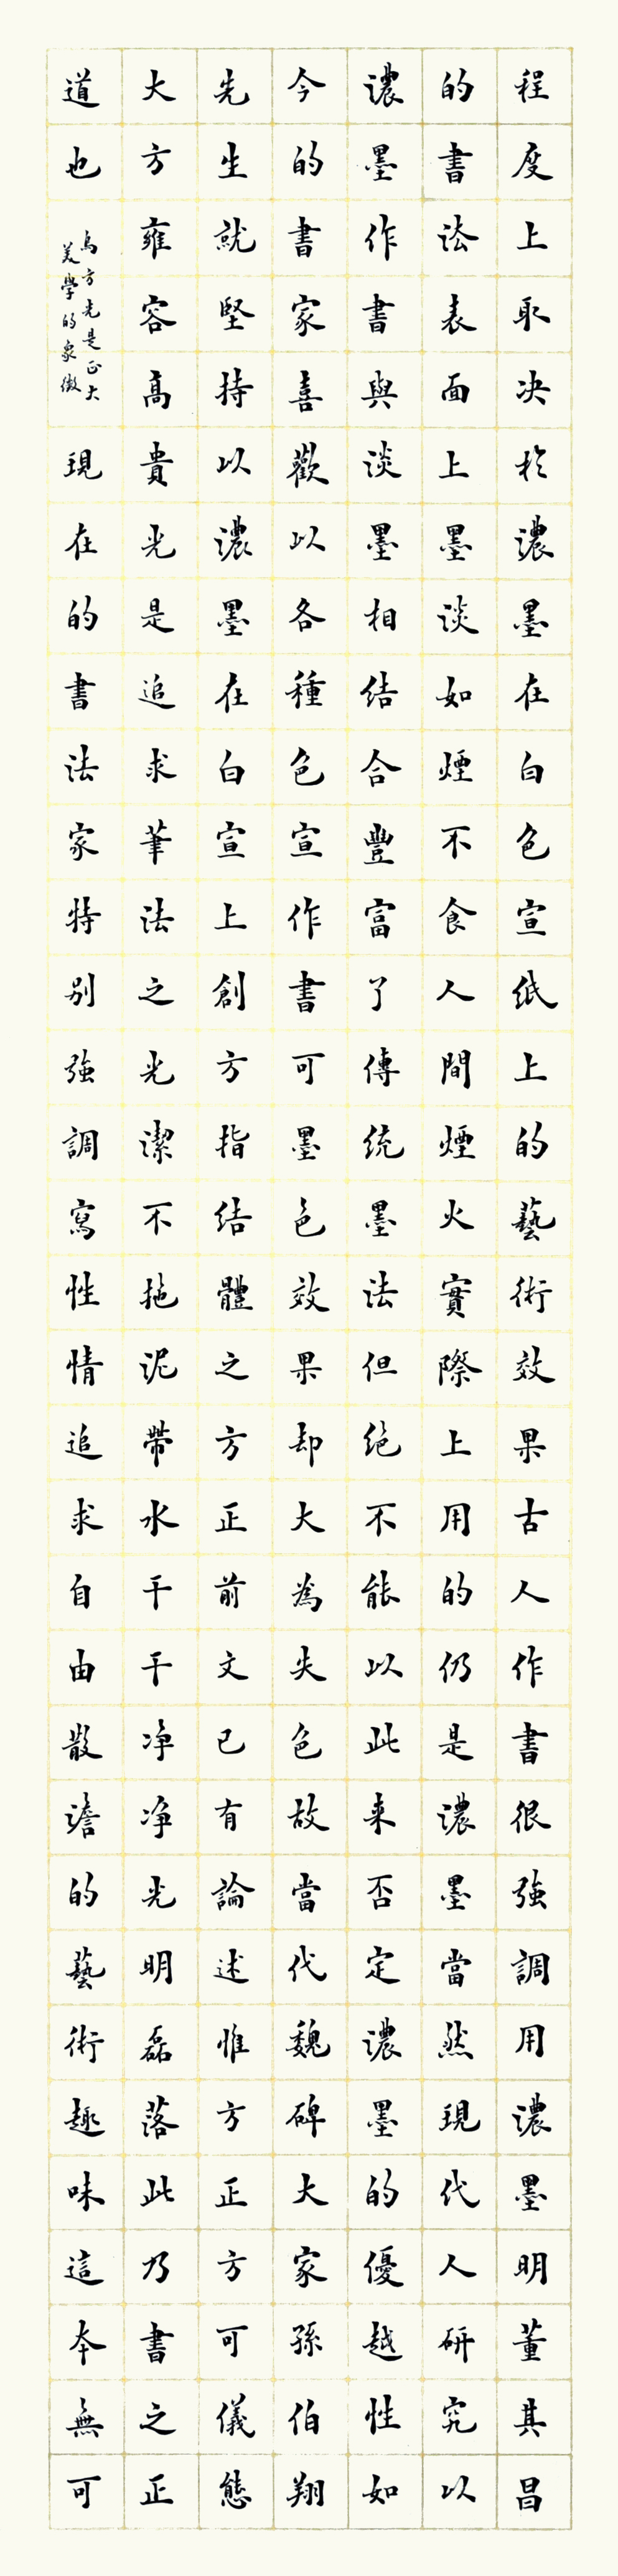 程度上取决於濃墨在白色宣纸上的藝術效果古人作書很強調用濃墨明董其昌
的書法表面上墨淡如煙不食人間煙火實際上用的仍是濃墨當然現代人研究以
濃墨作書與淡墨相结合豐富了傳统墨法但绝不能以此来否定濃墨的優越性如
今的書家喜歡以各種色宣作書可墨色效果却大為失色故當代魏碑大家孫伯翔
先生就堅持以濃墨在白宣上創方指结體之方正前文已有論述惟方正方可儀態
大方雍容高貴光是追求筆法之光潔不拖泥帶水干干净净光明磊落此乃書之正
道也
烏方光是正大
美學的象徵
現在的書法家特别強調寫性情追求自由散澹的藝術趣味這本無可